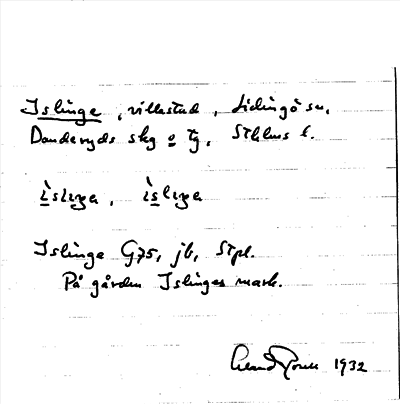 Islinge, villastad, Lidingö sn,
Danderyds skg o tg, Sthlms l.
ìslıŋa, ìslıŋa
Islinge G75, jb, Stpl.
På gården Islinges mark.
1932